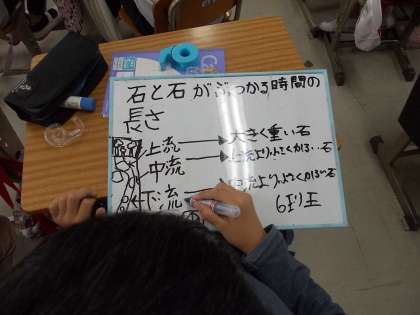 石と石がぶつかる時間の
長さ
上流→大きく重い石
中流→上流より小さくかるい石
下流→中流より小さくかるい石
6の王